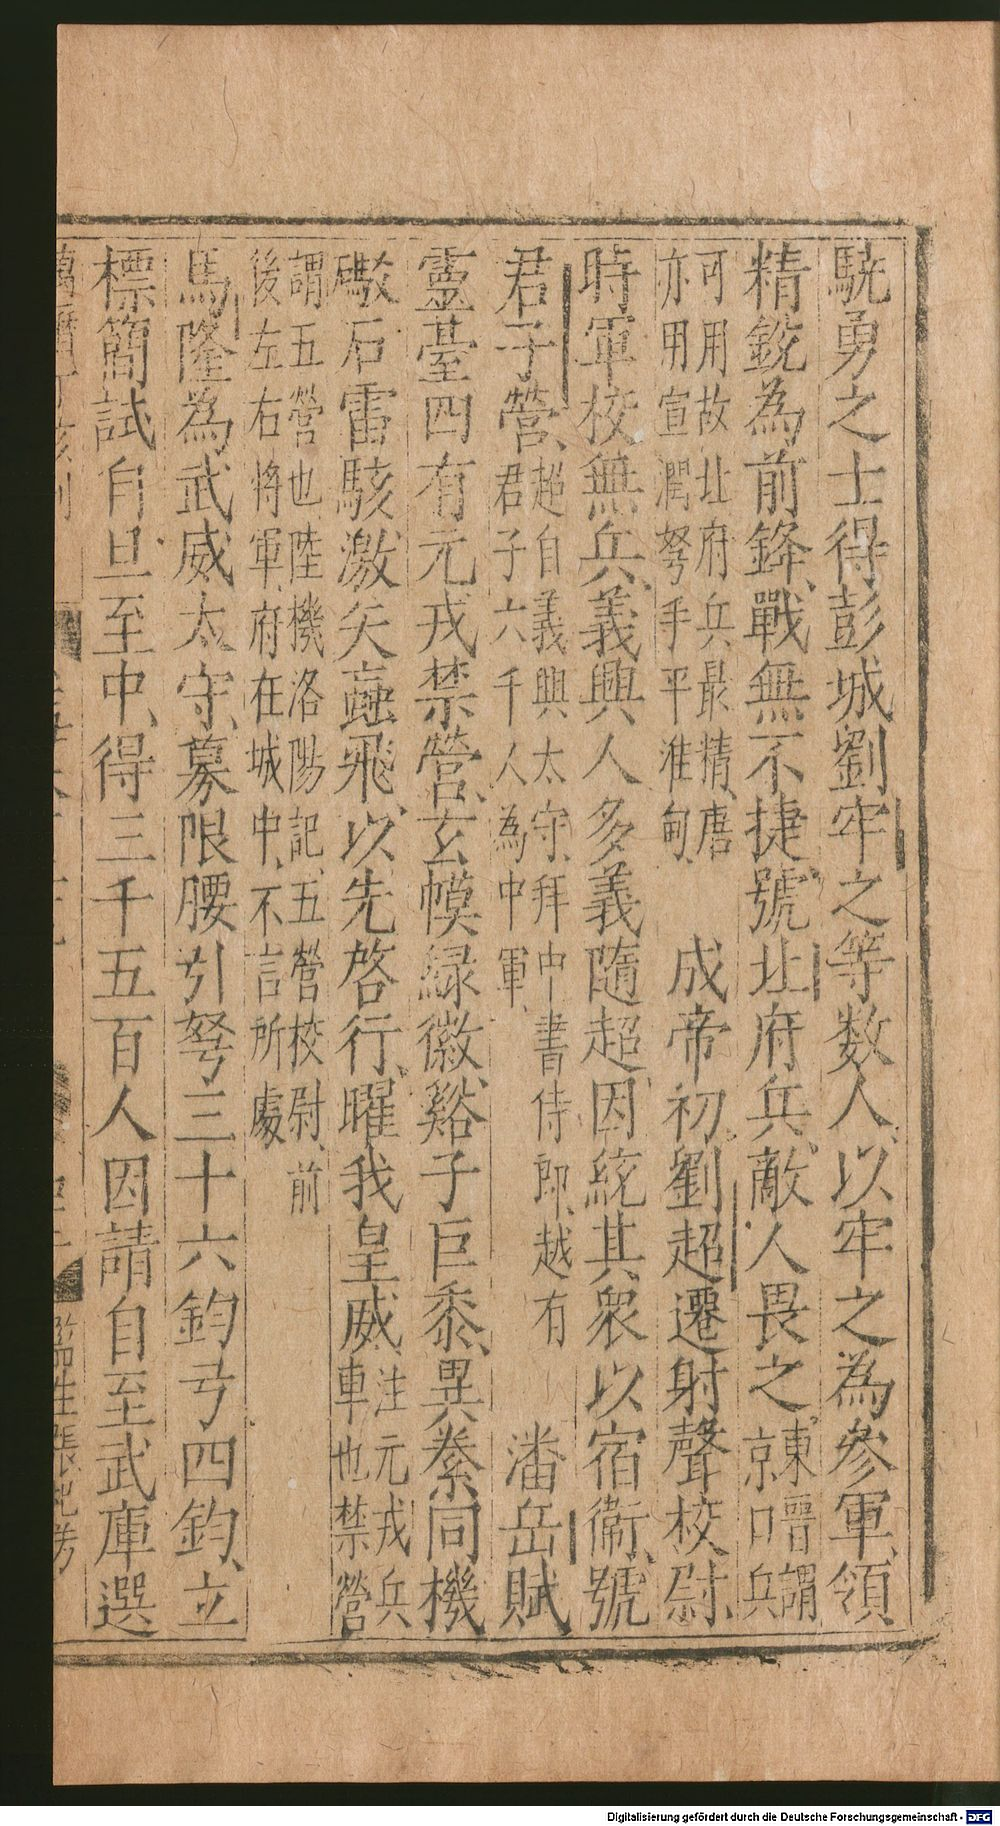 驍勇之士得彭城劉牢之等数人以牢之為參軍領
精銳為前鋒戰無不捷號北府兵敵人畏之東晉謂京口兵
可用故北府兵最精唐亦用宣潤弩手平淮甸 成帝初劉超遷射聲校尉
時軍校無兵義興人多義隨超因統其衆以宿衞號
君子營超自義興太守拜中書侍郎越有君子六千人為中軍 潘岳賦
靈䑓四有元戎禁營玄幙緑徽谿子巨黍異絭同機
礮石雷駭激矢蝱飛以先啓行曜我皇威注元戎兵車也禁營
謂五營也陸機洛陽記五營校尉前後左右將軍府在城中不言所處
馬隆為武威太守募限腰引弩三十六鈞弓四鈞立
標簡試自旦至中得三千五百人因請自至武庫選
監生張
Digitalisierung gefördert durch die Deutsche Forschungsgemeinschaft - DFG